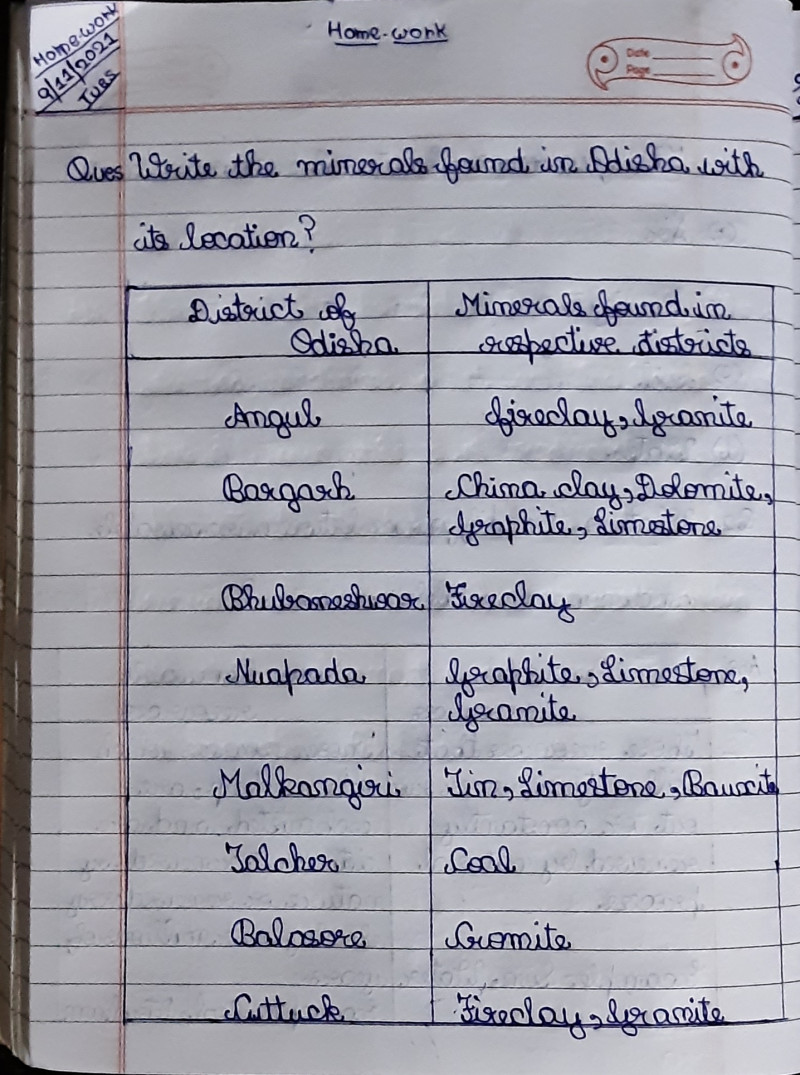 Home-work
9/11/2021
Tues
Home-work
Date
Page
Ques Write the minerals found in Odisha with
its location?
District of Odisha | Minerals found in respective districts
Angul | fireclay, Granite
Bargarh | China clay, Dolomite,
Graphite, Limestone
Bhubaneshwar | Fireclay
Nuapada | Graphite, Limestone,
Granite
Malkangiri | Tin, Limestone, Bauxite
Talcher | Coal
Balasore | Cromite
Cuttuck | Fireclay, Granite